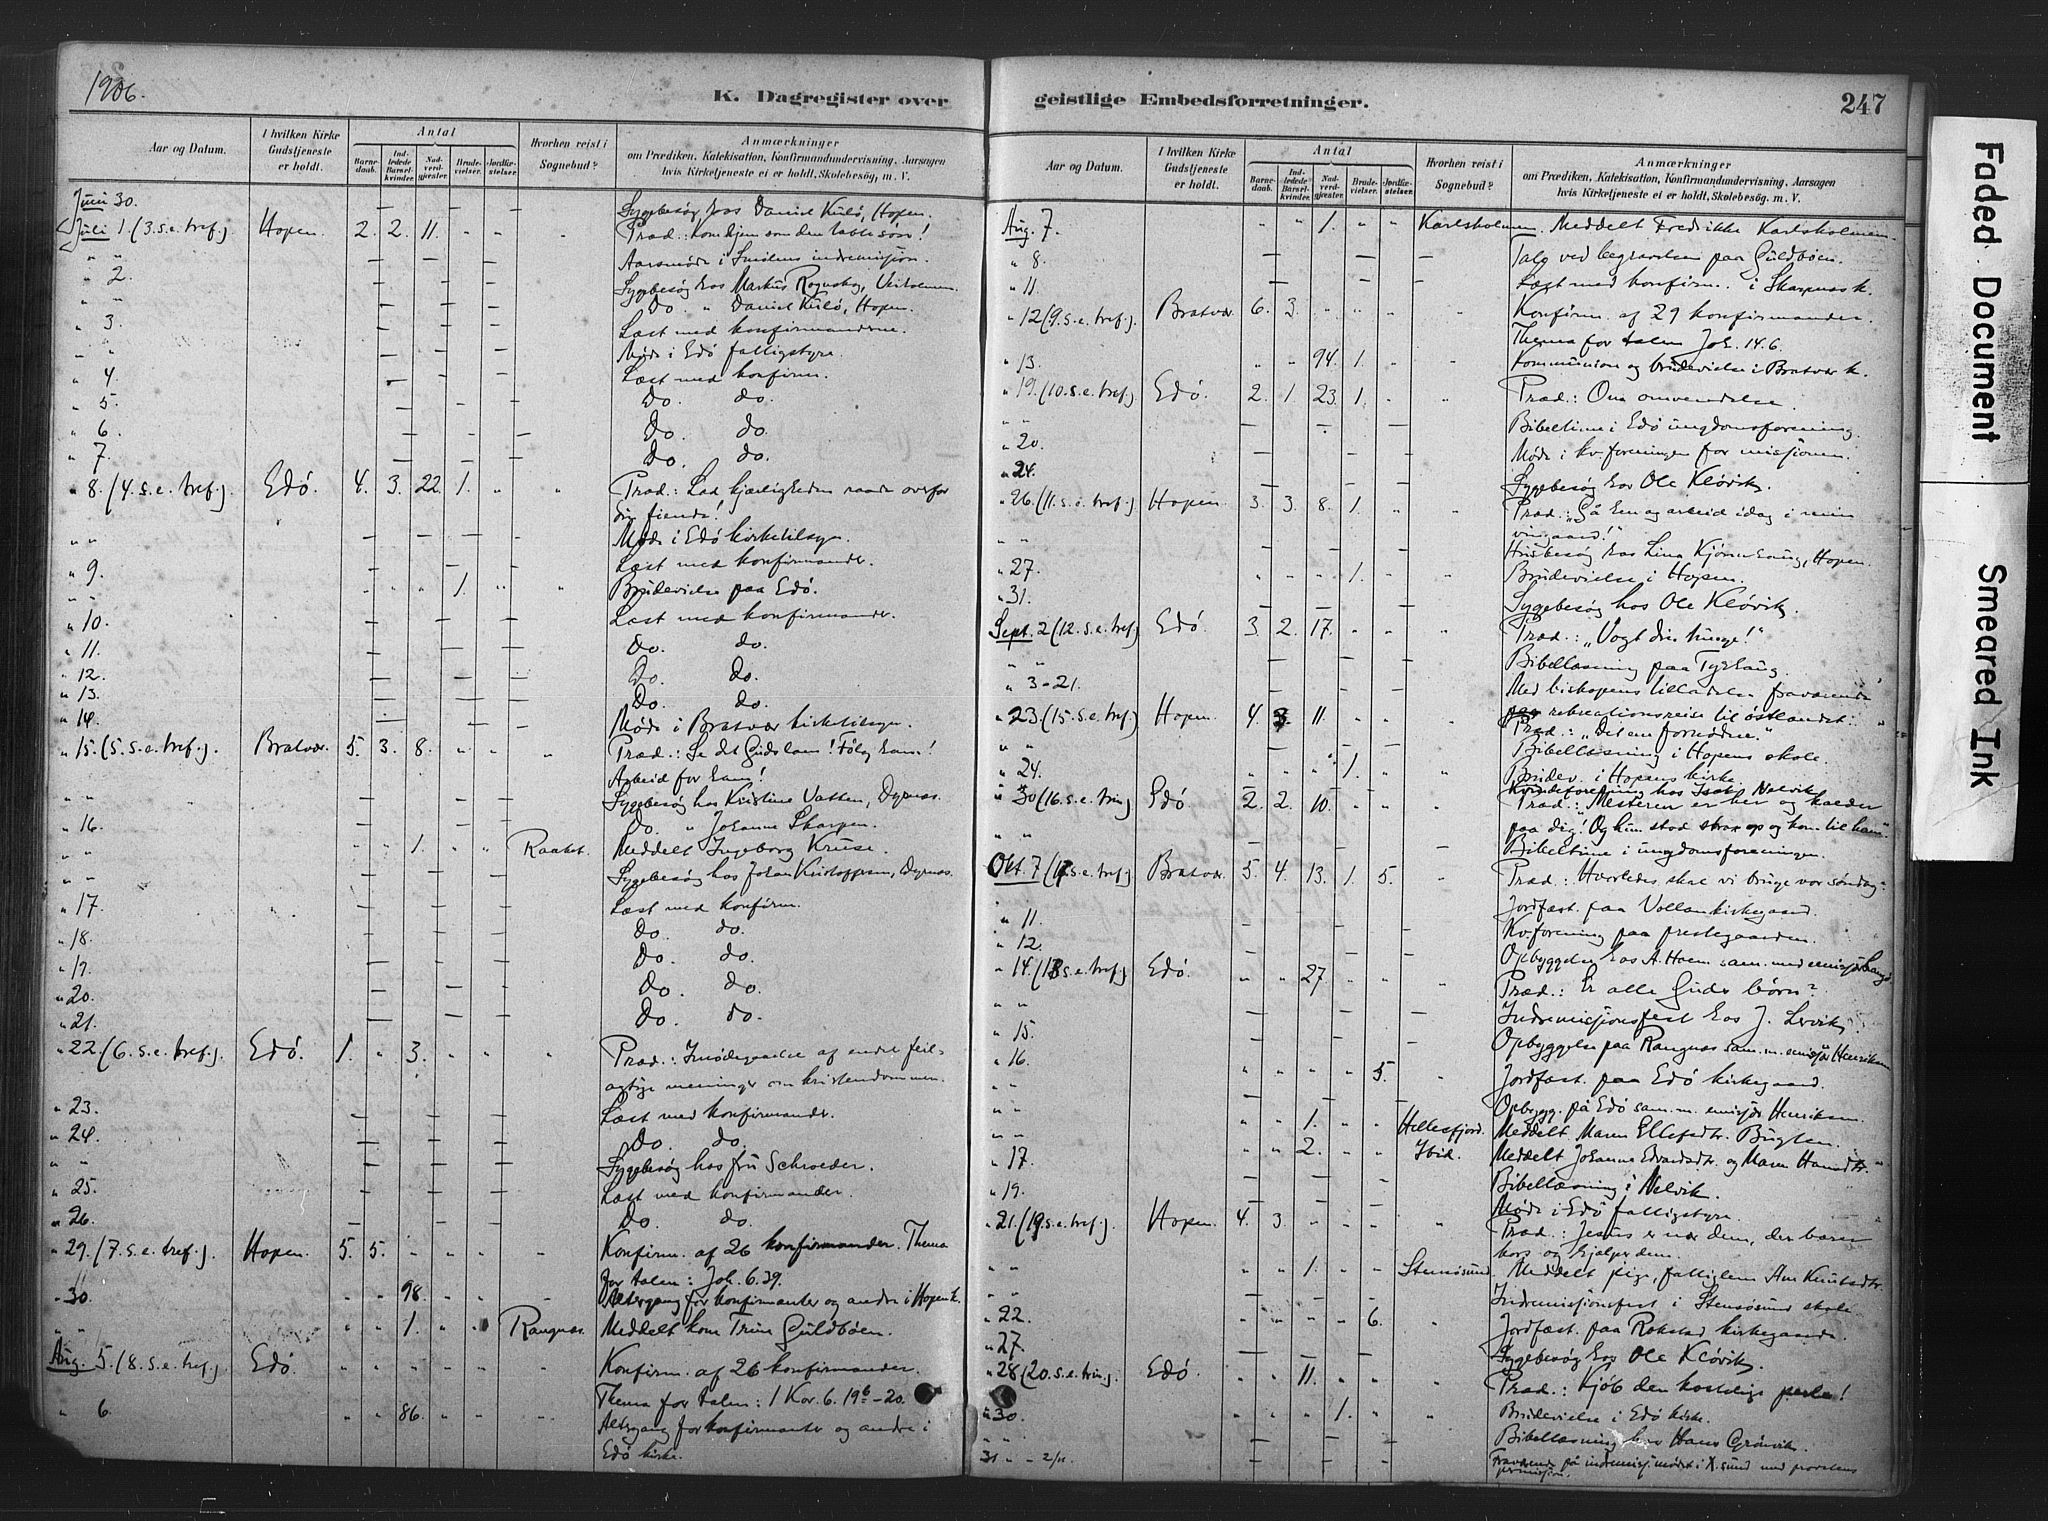 1906.
K. Dagregister over
Aar og Datum.
I hvilken Kirke Gudstjeneste er holdt.
Antal
Barnedaab.
Indledede Barselkvinder.
Nadverdgjester.
Brudevielser.
Jordfæstelser.
Hvorhen reist i Sognebud?
Anmærkninger
om Prædiken, Katekisation, Konfirmandundervisning, Aarsagen
hvis Kirketjeneste ei er holdt, Skolebesøg, m. V.
Juni 30. — — — — — Sygebesøg hos Daniel Kulö, Hopen.
Juli 1. (3. s. e. tref.) Hopen. 2. 2. 11. " " " Præd.: Kom hjem som den tabte søn!
" " — — — — — Aarsmøde i Smölens indremisjon.
" 2. — — — — — Sygebesøg hos Markus Rognskog, Veiholmen.
" " — — — — — Do. " Daniel Kulö, Hopen.
" 3. — — — — — Læst med konfirmanderne.
" " — — — — — Møde i Edö fattigstyre.
" 4. — — — — — Læst med konfirm.
" 5. — — — — — Do. do.
" 6. — — — — — Do. do.
" 7. — — — — — Do. do.
" 8. (4. s. e. tref.) Edö. 4. 3. 22. 1. " " Præd.: Lad kjærligheden raade overfor
din fiende!
" " — — — — — Møde i Edö kirketilsyn.
" 9. — — — — — Læst med konfirmander.
" " " " " 1. " " Brudevielse paa Edö.
" 10. — — — — — Læst med konfirmander.
" 11. — — — — — Do. do.
" 12. — — — — — Do. do.
" 13. — — — — — Do. do.
" 14. — — — — — Møde i Bratvær kirketilsyn.
" 15. (5. s. e. tref.) Bratvær. 5. 3. 8. " " " Præd.: Se det Guds lam! Følg ham!
Arbeid for ham!
" " — — — — — Sygebesøg hos Kristine Vatten, Dyrnæs.
" 16. — — — — — Do. " Johanne Skarpen.
" " 1. " " Raaket. Meddelt Ingeborg Kruse.
" " — — — — — Sygebesøg hos Johan Kristoffersen, Dyrnæs.
" 17. — — — — — Læst med konfirm.
" 18. — — — — — Do. do.
" 19. — — — — — Do. do.
" 20. — — — — — Do. do.
" 21. — — — — — Do. do.
" 22. (6. s. e. tref.) Edö. 1. " 3. " " " Præd.: Imødegaaelse af endel feil-
agtige meninger om kristendommen.
" 23. — — — — — Læst med konfirmander.
" 24. — — — — — Do. do.
" " — — — — — Sygebesøg hos fru Schroeder.
" 25. — — — — — Læst med konfirmander.
" 26. — — — — — Do. do.
" 29. (7. s. e. tref.) Hopen. 5. 5. " " " " Konfirm. af 26 konfirmander. Thema
for talen: Joh. 6. 39.
" 30. " " 98. " " " Altergang for konfirmanter og andre i Hopen k.
" " " " 1. " " Rangnæs. Meddelt kone Trine Guldbøen.
Aug. 5. (8. s. e. tref.) Edö " " " " " " Konfirm. af 26 konfirmander.
Thema for talen: 1 Kor. 6. 19b–20.
" 6. " " 86. " " " Altergang for konfirmanter og andre i
Edö kirke.
geistlige Embedsforretninger.
247
Aar og Datum.
I hvilken Kirke Gudstjeneste er holdt.
Antal
Barnedaab.
Indledede Barselkvinder.
Nadverdgjester.
Brudevielser.
Jordfæstelser.
Hvorhen reist i Sognebud?
Anmærkninger
om Prædiken, Katekisation, Konfirmandundervisning, Aarsagen
hvis Kirketjeneste ei er holdt, Skolebesøg, m. V.
Aug. 7. " " 1. " " Karlsholmen. Meddelt Fredrikke Karlsholmen.
" 8. — — — — — Tale ved begravelsen paa Guldbøen.
" 11. — — — — — Læst med konfirm. i Skarpnes k.
" 12 (9. s. e. tref.). Bratvær 6. 3. " " " " Konfirm. af 29 konfirmander.
Thema for talen Joh. 14. 6.
" 13. " " 94. 1. " " Kommunion og brudevielse i Bratvær k.
" 19. (10. s. e. tref.) Edö. 2. 1. 23. 1. " " Præd.: Om omvendelse.
" " — — — — — Bibeltime i Edö ungdomsforening.
" 20. — — — — — Møde i kv.foreningen for missjonen.
" 24. — — — — — Sygebesøg hos Ole Klövik.
" 26. (11. s. e. tref.) Hopen. 3. 3. 8. 1. " " Præd.: „Gå hen og arbeid idag i min
vingaard!"
" " — — — — — Husbesøg hos Lina Kjönnehaug, Hopen.
" 27. " " " 1. " " Brudevielse i Hopen.
" 31. — — — — — Sygebesøg hos Ole Klövik.
Sept. 2 (12. s. e. tref.) Edö. 3. 2. 17. " " " Præd.: „Vogt din tunge!"
" " — — — — — Bibellæsning paa Tyrhaug.
" 3–21. — — — — — Med biskopens tilladelse fraværende
rekreationsreise til østlandet.
" 23. (15. s. e. tref.) Hopen. 4. 3. 11. " " " Præd.: „Det ene fornødne."
" " — — — — — Bibellæsning i Hopens skole.
" 24. " " " 1. " " Brudev. i Hopens kirke.
" " — — — — — Kvindeforening hos Isak Nelvik.
" 30 (16. s. e. trin.) Edö. 2. 2. 10. " " " Præd.: „Mesteren er her og kalder
paa dig! Og hun stod strax op og kom til ham"
" " — — — — — Bibeltime i ungdomsforeningen.
Okt. 7 (17. s. e. tref.) Bratvær. 5. 4. 13. 1. 5. " Præd.: Hvorledes skal vi bruge vor søndag?
Jordfæst. paa Vollan kirkegaard.
" 11. — — — — — Kv.forening paa prestegaarden.
" 12. — — — — — Opbyggelse hos A. Hoem sam. med emissjær
" 14. (18. s. e. tref.) Edö. " " 27. " " " Præd.: Er alle Guds børn?
" " — — — — — Indremissjonsfest hos J. Lervik.
" 15. — — — — — Opbyggelse paa Rangnæs sam. m. emissjær Henriksen
" 16. " " " " 5. " Jordfæst. paa Edö kirkegaard.
" " — — — — — Opbygg. på Edö sam. m. emissjær Henriksen.
" " " " 1. " " Hellesfjord. Meddelt Maren Ellefsdtr. Bugten.
" 17. " " 2. " " Ibid. Meddelt Johanne Edvardsdtr. og Maren Hansdtr.
" " — — — — — Bibellæsning i Nelvik.
" 19. — — — — — Møde i Edö fattigstyre.
" 21. (19. s. e. tref.) Hopen. 4. 3. " " " " Præd.: Jesus er nær dem, der bærer
kors og hjælper dem.
" " " " 1. " " Stensøsund. Meddelt pige, fattiglem Ane Knutsdtr.
" " — — — — — Indremissjonsfest i Stensøsund skole.
" 22. " " " " 6. " Jordfæst. paa Rokstad kirkegaard.
" 27. — — — — — Sygebesøg hos Ole Klövik.
" 28 (20. s. e. trin.) Edö " " 11. " " " Præd.: Kjøb den kostelige perle!
" 30. " " " 1. " " Brudevielse i Edö kirke.
" " — — — — — Bibellæsning hos Hans Grönvik.
31 – – 2/11. — — — — — Fraværende på indremissj.mødet i K.sund med provstens
permission.
Faded Document
Smeared Ink